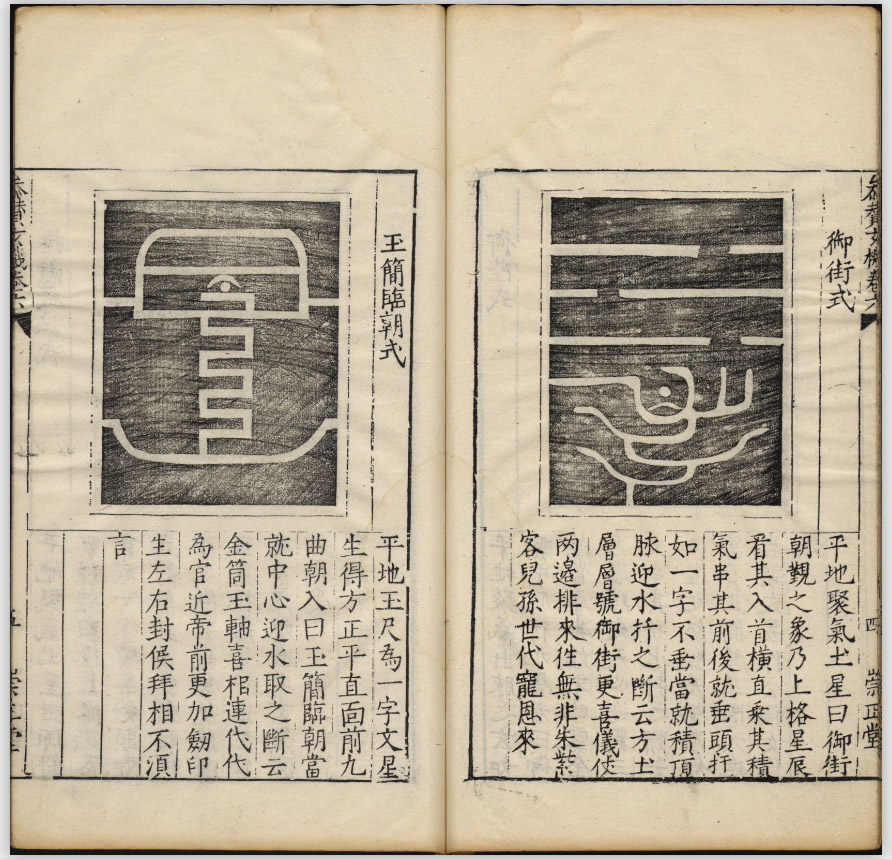 御街式
平地聚氣土星曰御街
朝覲之象乃上格星辰
看其入首橫直乘其積
氣串其前後就垂頭扦
如一字不垂當就積頂
脉迎水扦之斷云方土
層層號御街更喜儀仗
两邉排來徃無非朱紫
客兒孫世代寵恩來
四
崇正堂
玉簡臨朝式
平地玉尺為一字文星
生得方正平直面前九
曲朝入曰玉簡臨朝當
就中心迎水取之斷云
金筒玉軸喜棺連代代
為官近帝前更加劔印
生左右封侯拜相不湏
言
五
崇正堂